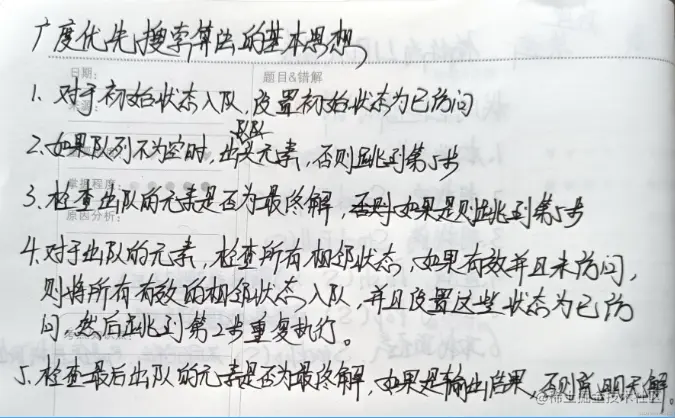 广度优先搜索算法的基本思想
日期:
题目&错解
1. 对于初始状态入队,设置初始状态为已访问
2. 如果队列不为空时,出队头元素,否则跳到第5步
掌握程度:
3. 检查出队的元素是否为最终解,如果是则跳到第5步
原因分析:
4. 对于出队的元素,检查所有相邻状态,如果有效并且未访问,
则将所有有效的相邻状态入队,并且设置这些状态为已访
问,然后跳到第2步重复执行。
5. 检查最后出队的元素是否为最终解,如果是输出结果,否则说明无解。
@稀土掘金技术社区